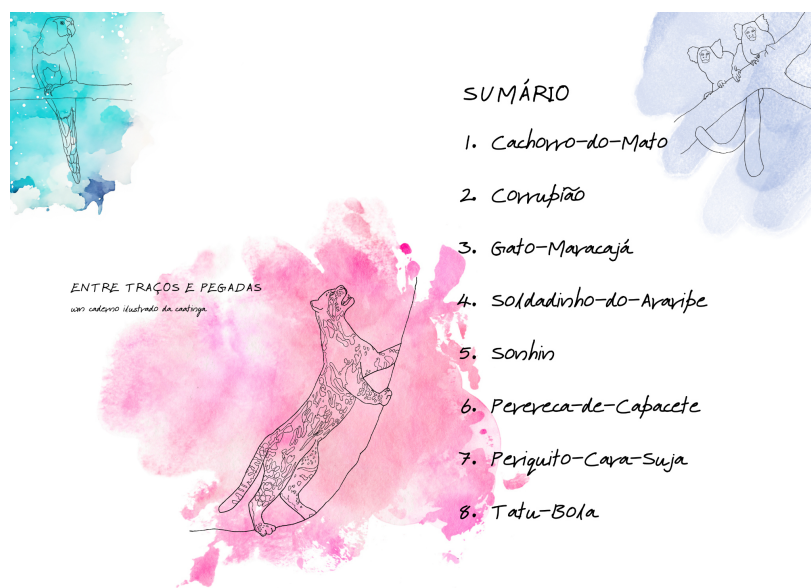 ENTRE TRAÇOS E PEGADAS
um caderno ilustrado da caatinga
SUMÁRIO
1. Cachorro-do-Mato
2. Corrupião
3. Gato-Maracajá
4. Soldadinho-do-Araripe
5. Sonhin
6. Perereca-de-Capacete
7. Periquito-Cara-Suja
8. Tatu-Bola